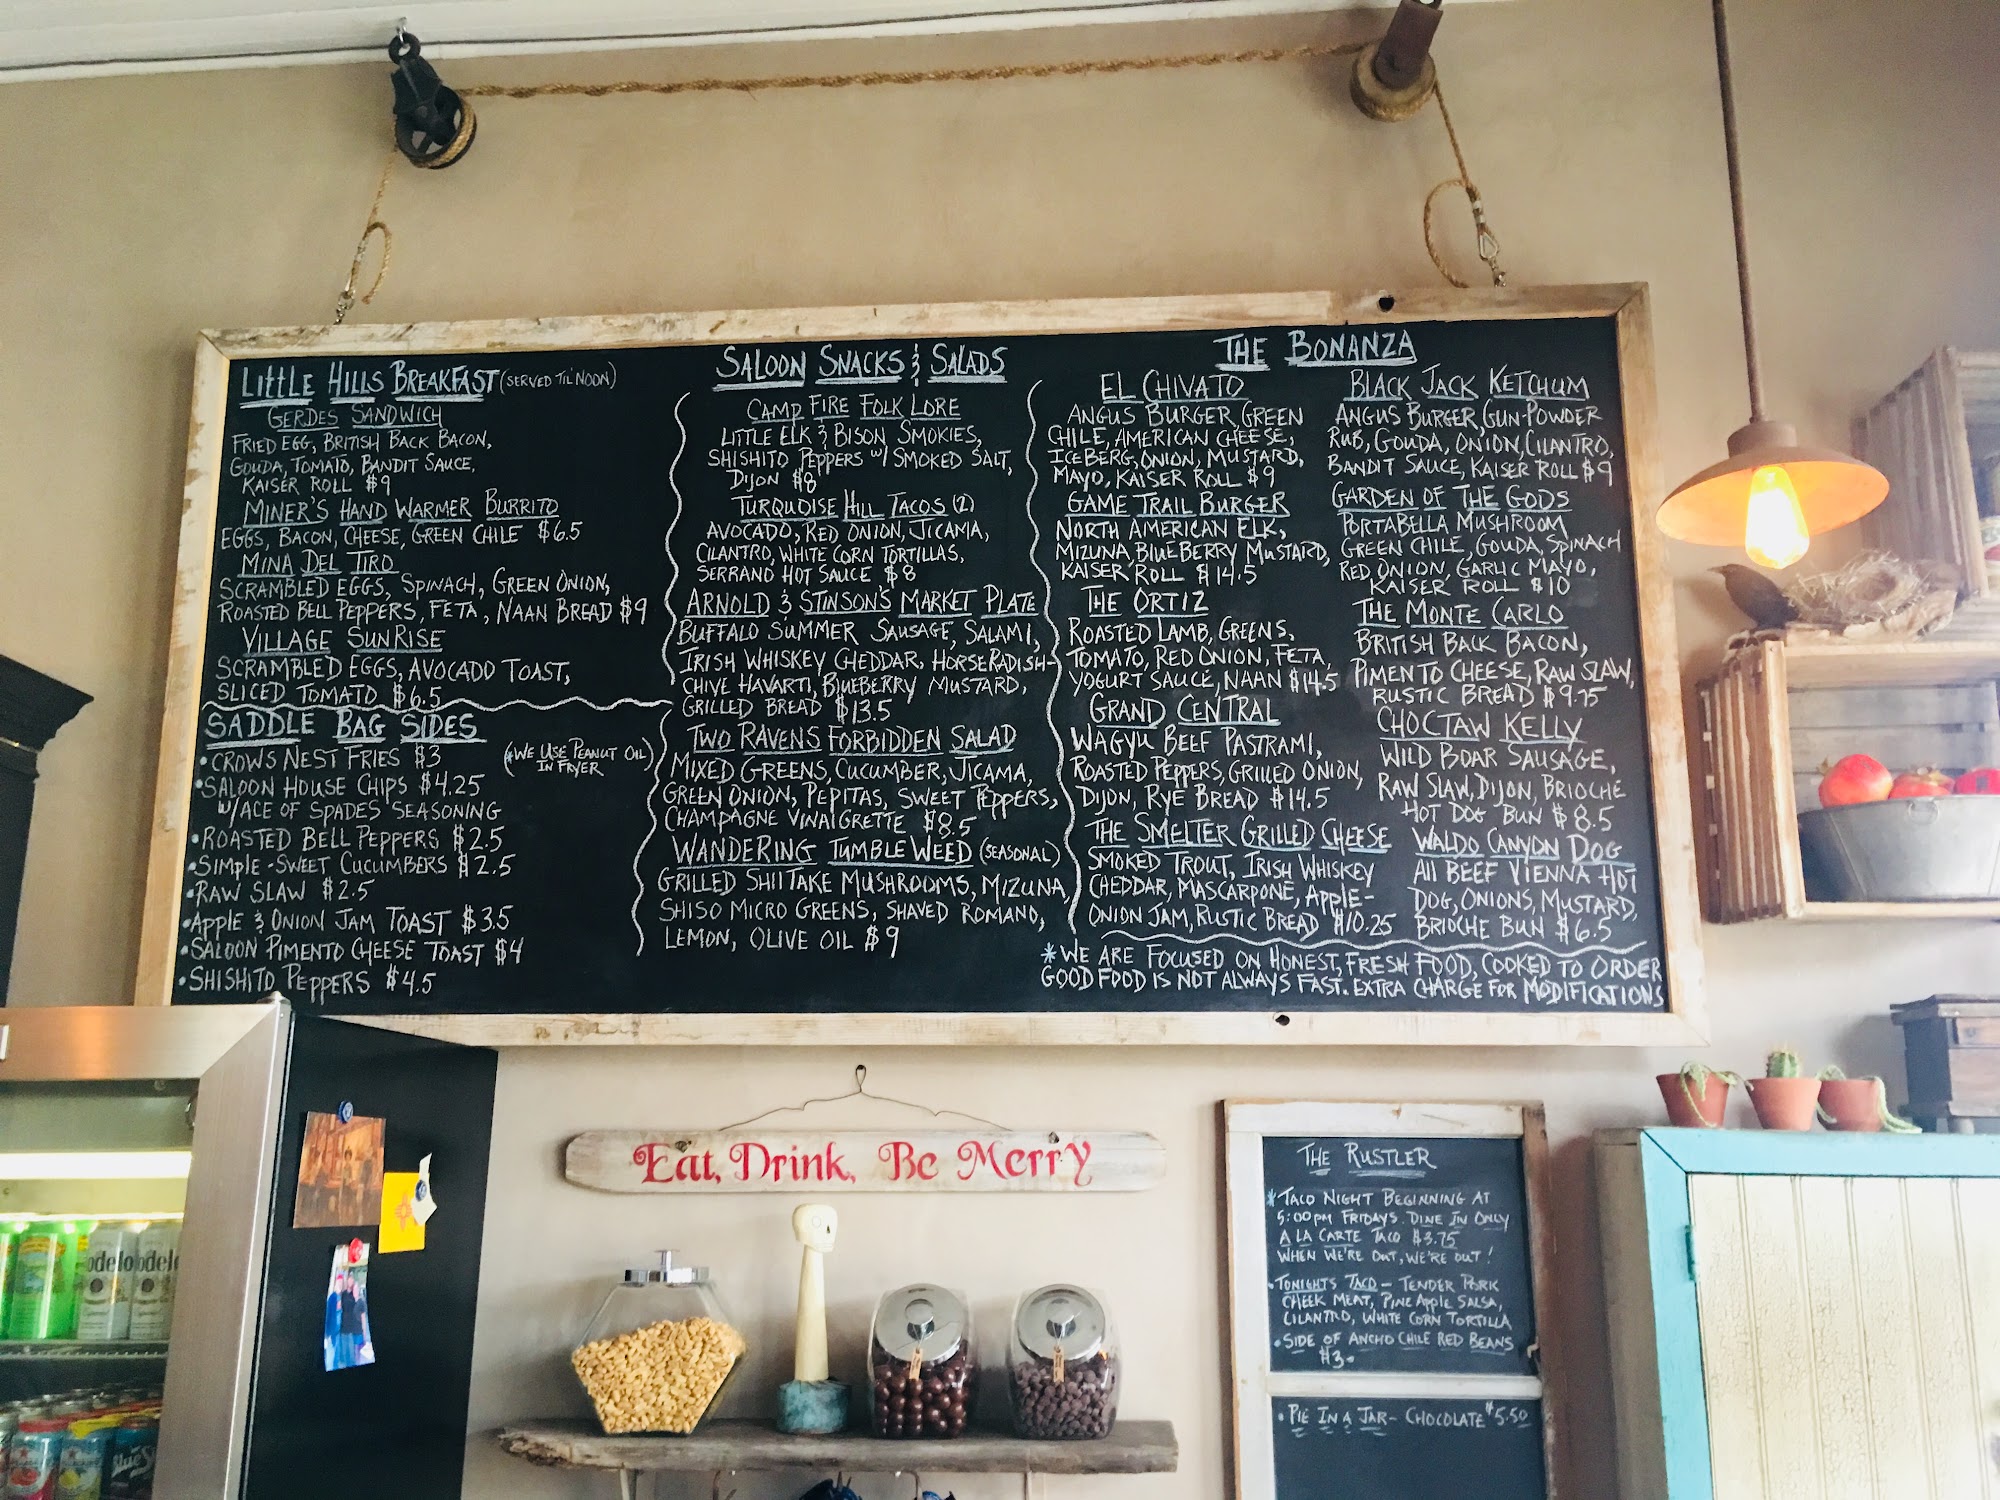 LITTLE HILLS BREAKFAST (SERVED TIL' NOON)
GERDES SANDWICH
FRIED EGG, BRITISH BACK BACON,
GOUDA, TOMATO, BANDIT SAUCE,
KAISER ROLL $9
MINER'S HAND WARMER BURRITO
EGGS, BACON, CHEESE, GREEN CHILE $6.5
MINA DEL TIRO
SCRAMBLED EGGS, SPINACH, GREEN ONION,
ROASTED BELL PEPPERS, FETA, NAAN BREAD $9
VILLAGE SUNRISE
SCRAMBLED EGGS, AVOCADO TOAST,
SLICED TOMATO $6.5
SADDLE BAG SIDES
• CROWS NEST FRIES $3
(*WE USE PEANUT OIL
IN FRYER)
• SALOON HOUSE CHIPS $4.25
W/ACE OF SPADES SEASONING
• ROASTED BELL PEPPERS $2.5
• SIMPLE-SWEET CUCUMBERS $2.5
• RAW SLAW $2.5
• APPLE & ONION JAM TOAST $3.5
• SALOON PIMENTO CHEESE TOAST $4
• SHISHITO PEPPERS $4.5
SALOON SNACKS & SALADS
CAMP FIRE FOLK LORE
LITTLE ELK & BISON SMOKIES,
SHISHITO PEPPERS W/ SMOKED SALT,
DIJON $8
TURQUOISE HILL TACOS (2)
AVOCADO, RED ONION, JICAMA,
CILANTRO, WHITE CORN TORTILLAS,
SERRANO HOT SAUCE $8
ARNOLD & STINSON'S MARKET PLATE
BUFFALO SUMMER SAUSAGE, SALAMI,
IRISH WHISKEY CHEDDAR, HORSERADISH-
CHIVE HAVARTI, BLUEBERRY MUSTARD,
GRILLED BREAD $13.5
TWO RAVENS FORBIDDEN SALAD
MIXED GREENS, CUCUMBER, JICAMA,
GREEN ONION, PEPITAS, SWEET PEPPERS,
CHAMPAGNE VINAIGRETTE $8.5
WANDERING TUMBLE WEED (SEASONAL)
GRILLED SHIITAKE MUSHROOMS, MIZUNA,
SHISO MICRO GREENS, SHAVED ROMANO,
LEMON, OLIVE OIL $9
THE BONANZA
EL CHIVATO
ANGUS BURGER, GREEN
CHILE, AMERICAN CHEESE,
ICEBERG, ONION, MUSTARD,
MAYO, KAISER ROLL $9
GAME TRAIL BURGER
NORTH AMERICAN ELK,
MIZUNA, BLUEBERRY MUSTARD,
KAISER ROLL $14.5
THE ORTIZ
ROASTED LAMB, GREENS,
TOMATO, RED ONION, FETA,
YOGURT SAUCE, NAAN $14.5
GRAND CENTRAL
WAGYU BEEF PASTRAMI,
ROASTED PEPPERS, GRILLED ONION,
DIJON, RYE BREAD $14.5
THE SMELTER GRILLED CHEESE
SMOKED TROUT, IRISH WHISKEY
CHEDDAR, MASCARPONE, APPLE-
ONION JAM, RUSTIC BREAD $10.25
BLACK JACK KETCHUM
ANGUS BURGER, GUN-POWDER
RUB, GOUDA, ONION, CILANTRO,
BANDIT SAUCE, KAISER ROLL $9
GARDEN OF THE GODS
PORTABELLA MUSHROOM
GREEN CHILE, GOUDA, SPINACH
RED ONION, GARLIC MAYO,
KAISER ROLL $10
THE MONTE CARLO
BRITISH BACK BACON,
PIMENTO CHEESE, RAW SLAW,
RUSTIC BREAD $9.75
CHOCTAW KELLY
WILD BOAR SAUSAGE,
RAW SLAW, DIJON, BRIOCHE
HOT DOG BUN $8.5
WALDO CANYON DOG
All BEEF VIENNA HOT
DOG, ONIONS, MUSTARD,
BRIOCHE BUN $6.5
*WE ARE FOCUSED ON HONEST, FRESH FOOD, COOKED TO ORDER
GOOD FOOD IS NOT ALWAYS FAST. EXTRA CHARGE FOR MODIFICATIONS
Eat, Drink, Be Merry
THE RUSTLER
* TACO NIGHT BEGINNING AT
5:00PM FRIDAYS. DINE IN ONLY
A LA CARTE TACO $3.75
WHEN WE'RE OUT, WE'RE OUT!
• TONIGHTS TACO - TENDER PORK
CHEEK MEAT, PINEAPPLE SALSA,
CILANTRO, WHITE CORN TORTILLA
• SIDE OF ANCHO CHILE RED BEANS
$3.
• PIE IN A JAR - CHOCOLATE $5.50
odelo
odelo